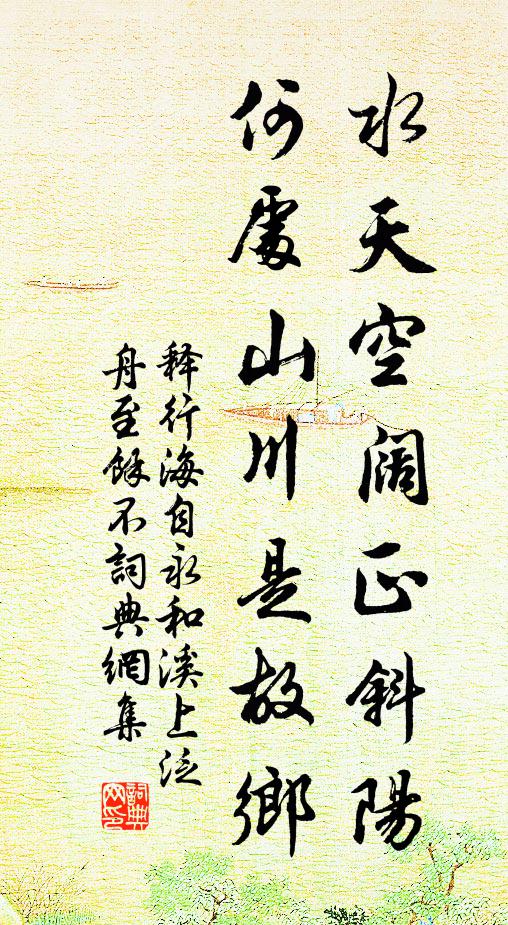 水天空闊正斜陽
何處山川是故鄉
释行海自永和溪上泛
舟至餘不詞典網集
詞典网印